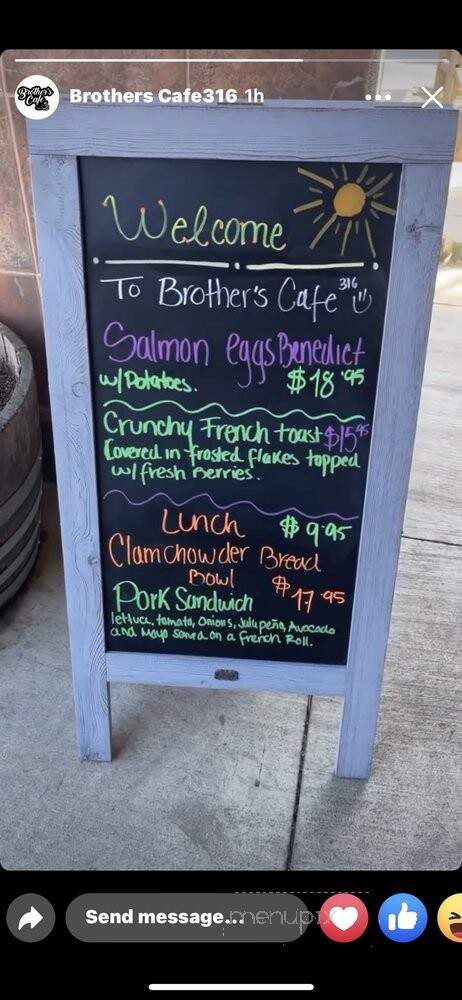 Brother's Cafe
Brothers Cafe316 1h
Welcome
To Brother's Cafe 316
Salmon eggs Benedict
w/Potatoes. $18.95
Crunchy French toast $15.45
Covered in frosted flakes topped
w/fresh Berries.
Lunch $9.95
Clam chowder Bread
Bowl
Pork Sandwich $17.95
lettuce, tomato, Onions, Jalapeño, Avocado
and Mayo Served on a French Roll.
Send message...
menupix